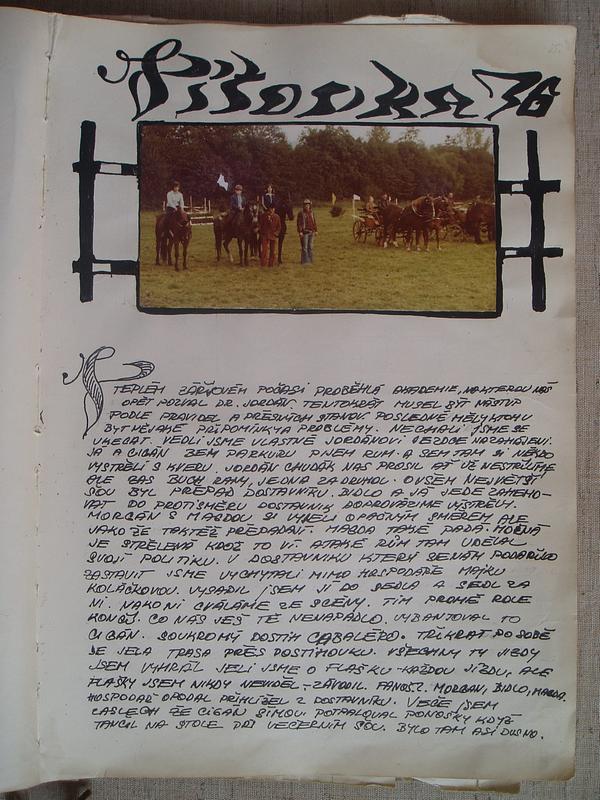 76
V
TEPLÉM ZÁŘIJOVÉM POČASÍ PROBĚHLA AKADEMIE, NA KTEROU NÁS
OPĚT POZVAL DR. JORDÁN. TENTOKRÁT MUSEL BÝT NÁSTUP
PODLE PRAVIDEL A PŘESNÝCH STANOV. POSLEDNĚ MĚLY K TOMU
BÝT NĚJAKÉ PŘIPOMÍNKY A PROBLÉMY. NECHALI JSME SE
UKECAT. VEDLI JSME VLASTNĚ JORDÁNOVI JEZDCE NA ZAHÁJENÍ.
JÁ A CIGÁN BĚM PARKURU PIJEM RUM. A SEM TAM SI NĚKDO
VYSTŘELÍ S KVERU. JORDÁN CHUDÁK NÁS PROSIL AŤ UŽ NESTŘÍLÍME
ALE BAS BUCH RÁNY, JEDNA ZA DRUHOU. OVŠEM NEJVĚTŠÍ
ŠOU BYL PŘEPAD DOSTAVNÍKU. BIDLO A JÁ JEDE ZAMEHO-
VAT DO PROTISMĚRU DOSTAVNÍK DOPROVÁZÍME VÝSTŘELY.
MORGAN S MAGDOU SI VYJELI OPAČNÝM SMĚREM ALE
JAKO ŽE TAKTÉŽ PŘEPADÁNÍ MAGDA TAKÉ PADÁ MOŽNÁ
JE STŘELENÁ KDOŽ TO VÍ? A TAKÉ RUM TAM UDĚLAL
SVOJÍ POLITIKU. V DOSTAVNÍKU KTERÝ SE NÁM PODAŘILO
ZASTAVIT JSME VYCHYTALI MIMO HOSPODÁŘE MAJKU
KOLÁČKOVOU. VYSADIL JSEM JÍ DO SEDLA A SEDL ZA
NÍ. NA KONI CVÁLÁME ZE SCÉNY. TÍM PRO MĚ ROLE
KONČÍ. CO NÁS JEŠTĚ NENAPADLO, VYBANTOVAL TO
CIGÁN. SOUKROMÝ DOSTIH CABALERO. TŘIKRÁT PO SOBĚ
SE JELA TRASA PŘES POSTIHOVKU. VŠECHNY TY JÍZDY
JSEM VYHRÁL JELI JSME O FLAŠKU KAŽDOU JÍZDU, ALE
FLAŠKY JSEM NIKDY NEVIDĚL. ZÁVODIL FANOŠ?. MORGAN, BIDLO, MAGDA.
HOSPODÁŘ OPODAL PŘIHLÍŽEL Z DOSTAVNÍKU. VEČE JSEM
ZASLECH ŽE CIGÁN ŠÍMOVI POTRALOVAL PONOŽKY KDYŽ
TANČIL NA STOLE PŘI VEČERNÍM ŠOU. BYLO TAM ASI DUSNO.